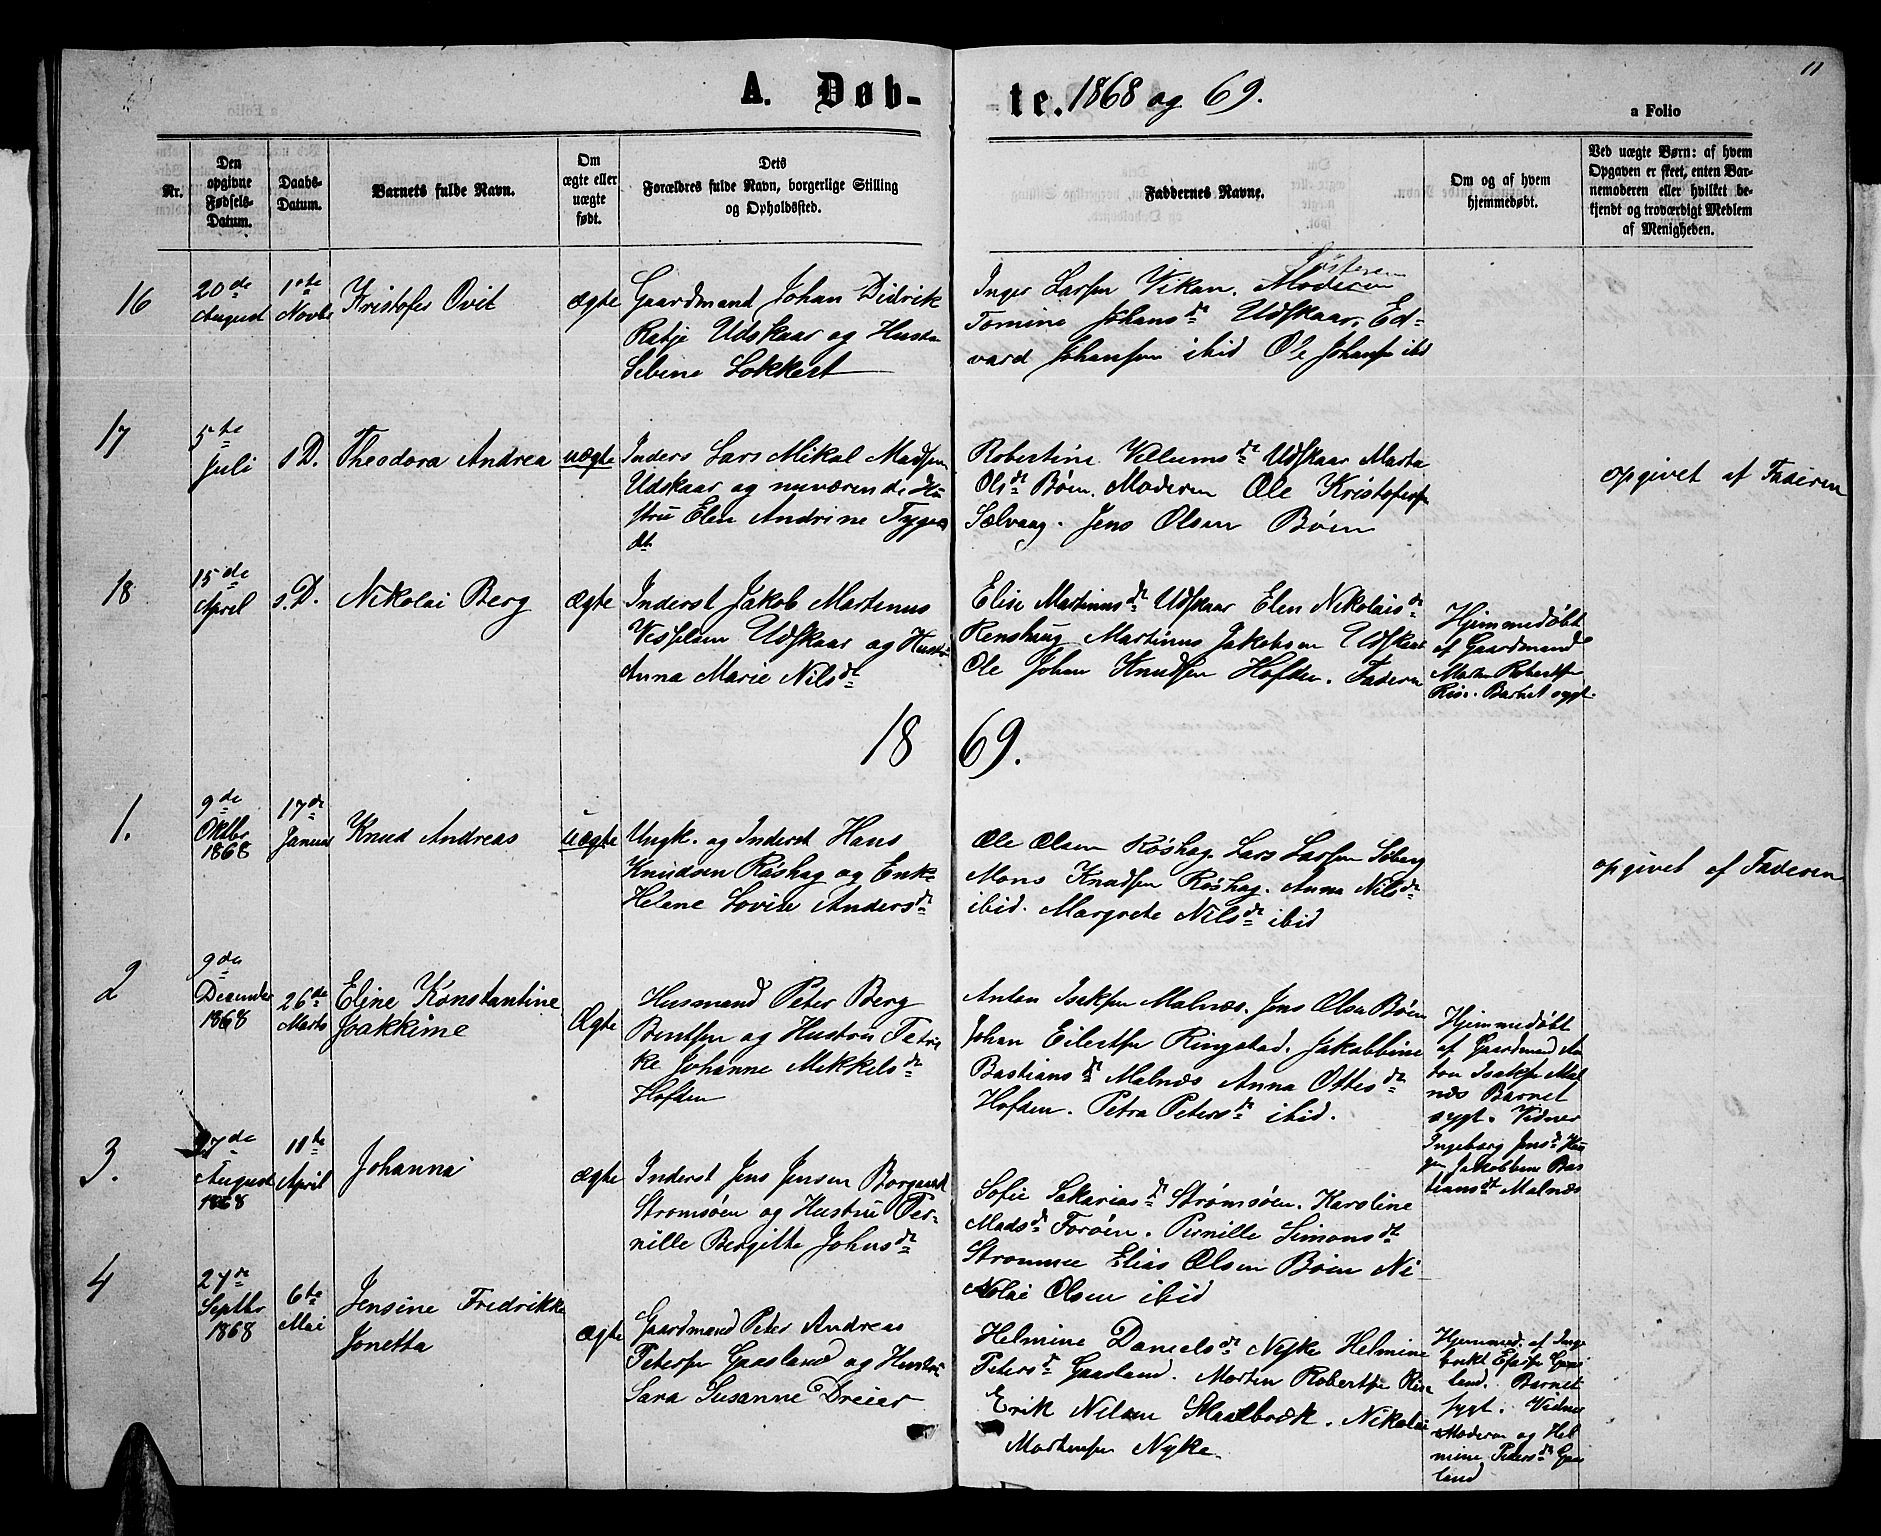 11
A. Døb-
te. 1868 og 69.
a Folio
Nr.
Den
opgivne
Fødsels-
Datum.
Daabs-
Datum.
Barnets fulde Navn.
Om
ægte eller
uægte
født.
Dets
Forældres fulde Navn, borgerlige Stilling
og Opholdssted.
Faddernes Navne.
Om og af hvem
hjemmedøbt.
Ved uægte Børn: af hvem
Opgaven er skeet, enten Bar-
nemoderen eller hvilket be-
kjendt og troværdigt Medlem
af Menigheden.
16
20de
August
1ste
Novbr
Kristofer Ovit
ægte
Gaardmand Johan Didrik
Ratje Udskaar og Hustr
Sebine Lokkert
Inger Larsen Vikan. Moderen
Tomine Johansdt Udskaar. Ed-
vard Johansen ibid Ole Johansen ibid
17
5te
Juli
s D.
Theodora Andrea
uægte
Inders Lars Mikal Madsen
Udskaar og nuværende Hu
stru Elen Andrine Tyges
dt
Robertine Villumsdt Udskaar Marta
Olsdt Bøen. Moderen Ole Kristofersen
Sælvaag. Jens Olsen Bøen
opgivet af Faderen
18
15de
April
s. D.
Nikolai Berg
ægte
Inderst Jakob Martinus
Udskaar og Hustru
Anna Marie Nilsdt
Elise Martinusdt Udskaar Elen Nikolaisdt
Martinus Jakobsen Udskaar
Ole Johan Knudsen Hofden. Faderen
Hjemmedøbt
af Gaardmand
Morten Robertsen
Rise. Barnet sygt
1869.
1.
9de
Oktbr
1868
17de
Januar
Knud Andreas
uægte
Ungk. og Inderst Hans
Knudsen Røshag og Enke
Helene Lovise Andersdt
Ole Olsen Røshag. Lars Larsen Søberg
Mons Knudsen Røshag. Anna Nilsdt
ibid. Margrete Nilsdt ibid
opgivet af Faderen
2
9de
December
1868
26de
Marts
Eline Konstantine
Joakkime
Ægte
Husmand Peter Berg
Bentsen og Hustru Petri
ke Johanne Mikkelsdt
Hofden
Anton Isaksen Malnæs. Jens Olsen Bøen
Johan Eilertsen Ringstad. Jakobbine
Bastiansdt Malnæs Anna Ottesdt
Hofden. Petra Petersdt ibid.
Hjemmedøbt
af Gaardmand An
ton Isaksen Mal
næs Barnet
sygt. Vidner
Ingeborg Jensdt
Jakobbine Bas
tiansdt Malnæs
3.
27de
August
1868
11te
April
Johanna
ægte
Inderst Jens Jensen
Strømsøen og Hustru Per-
nille Bergitte Johnsdt
Sofie Sakariasdt Strømsøen. Karoline
Madsdt Forøen. Pernille Simonsdt
Elias Olsen Bøen Ni-
kolai Olsen ibid
4
27de
Septbr
1868
6te
Mai
Jensine Fredrikke
Jonetta
ægte
Gaardmand Peter Andreas
Petersen Gaasland og Hustru
Sara Susanne Dreier
Helmine Danielsdt Nyke Helmine
Petersdt Gaasland. Morten Robertsen Rise
Erik Nilsen Skaalbræk. Nikolai
Mortensen Nyke.
Hjemmed. af Inge
brikt
land. Barnet
sygt. Vidner
Moderen og Hel
mine Petersdt Gaas
land